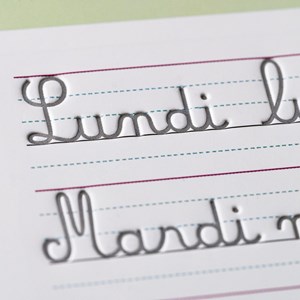 Lundi
Mardi